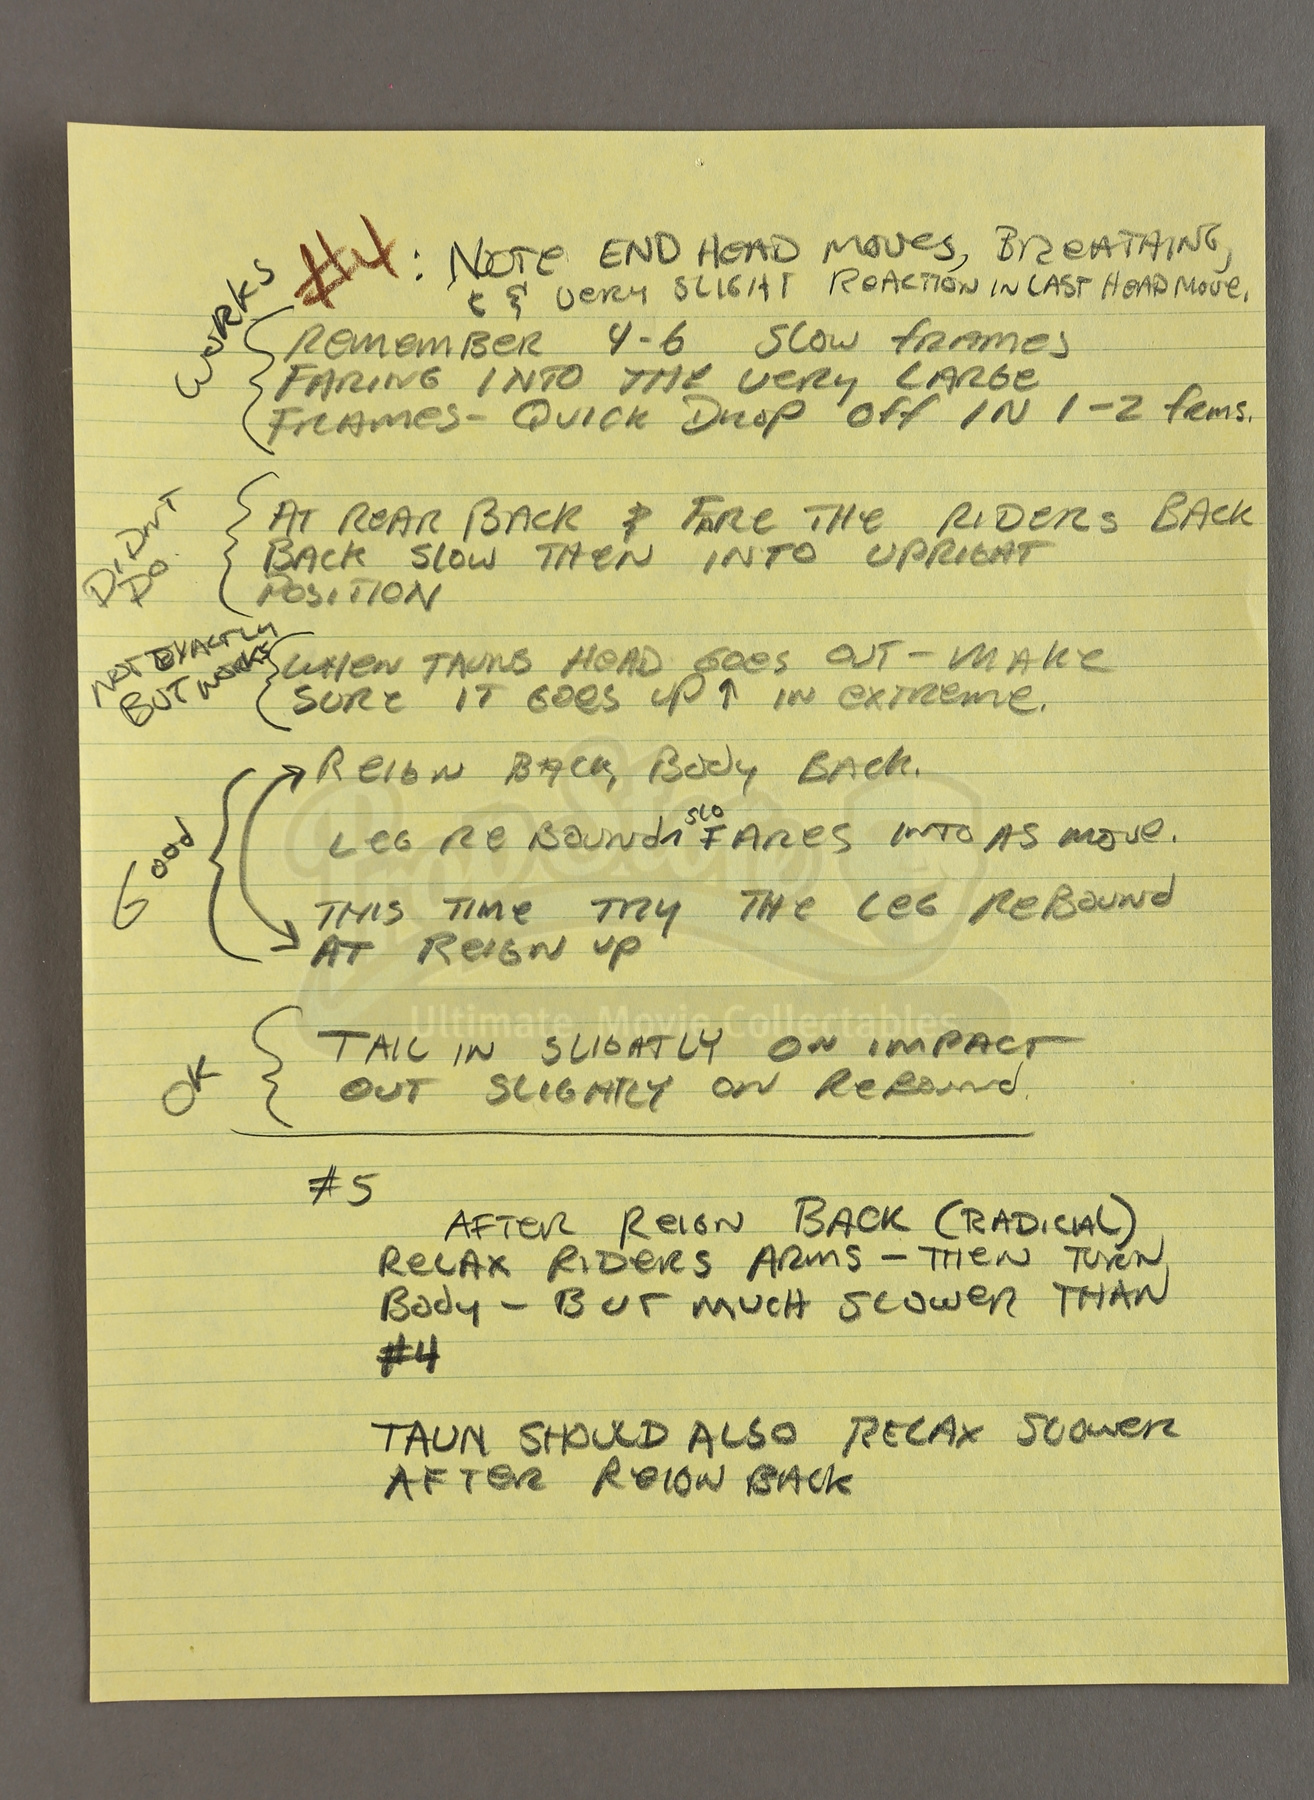 #4: NOTE END HEAD MOVES, BREATHING,
& VERY SLIGHT REACTION IN LAST HEAD MOVE.
WORKS
REMEMBER 4-6 SLOW frames
FARING INTO THE VERY LARGE
FRAMES- QUICK DROP Off IN 1-2 frms.
DIDNT
DO.
AT REAR BACK & FARE THE RIDERS BACK
BACK SLOW THEN INTO UPRIGHT
POSITION
NOT EXACTLY
BUT WORKS
WHEN TAUNS HEAD GOES OUT- MAKE
SURE IT GOES UP ↑ IN EXTREME.
Good
REIGN BACK, BODY BACK.
LEG REBOUND SLO FARES INTO AS MOVE.
THIS TIME TRY THE LEG REBOUND
AT REIGN UP
OK
TAIL IN SLIGHTLY ON IMPACT
OUT SLIGHTLY ON REBOUND.
PropStore
Ultimate Movie Collectables
#5
AFTER REIGN BACK (RADICIAL)
RELAX RIDERS ARMS - THEN TURN
BODY - BUT MUCH SLOWER THAN
#4
TAUN SHOULD ALSO RELAX SLOWER
AFTER REIGN BACK